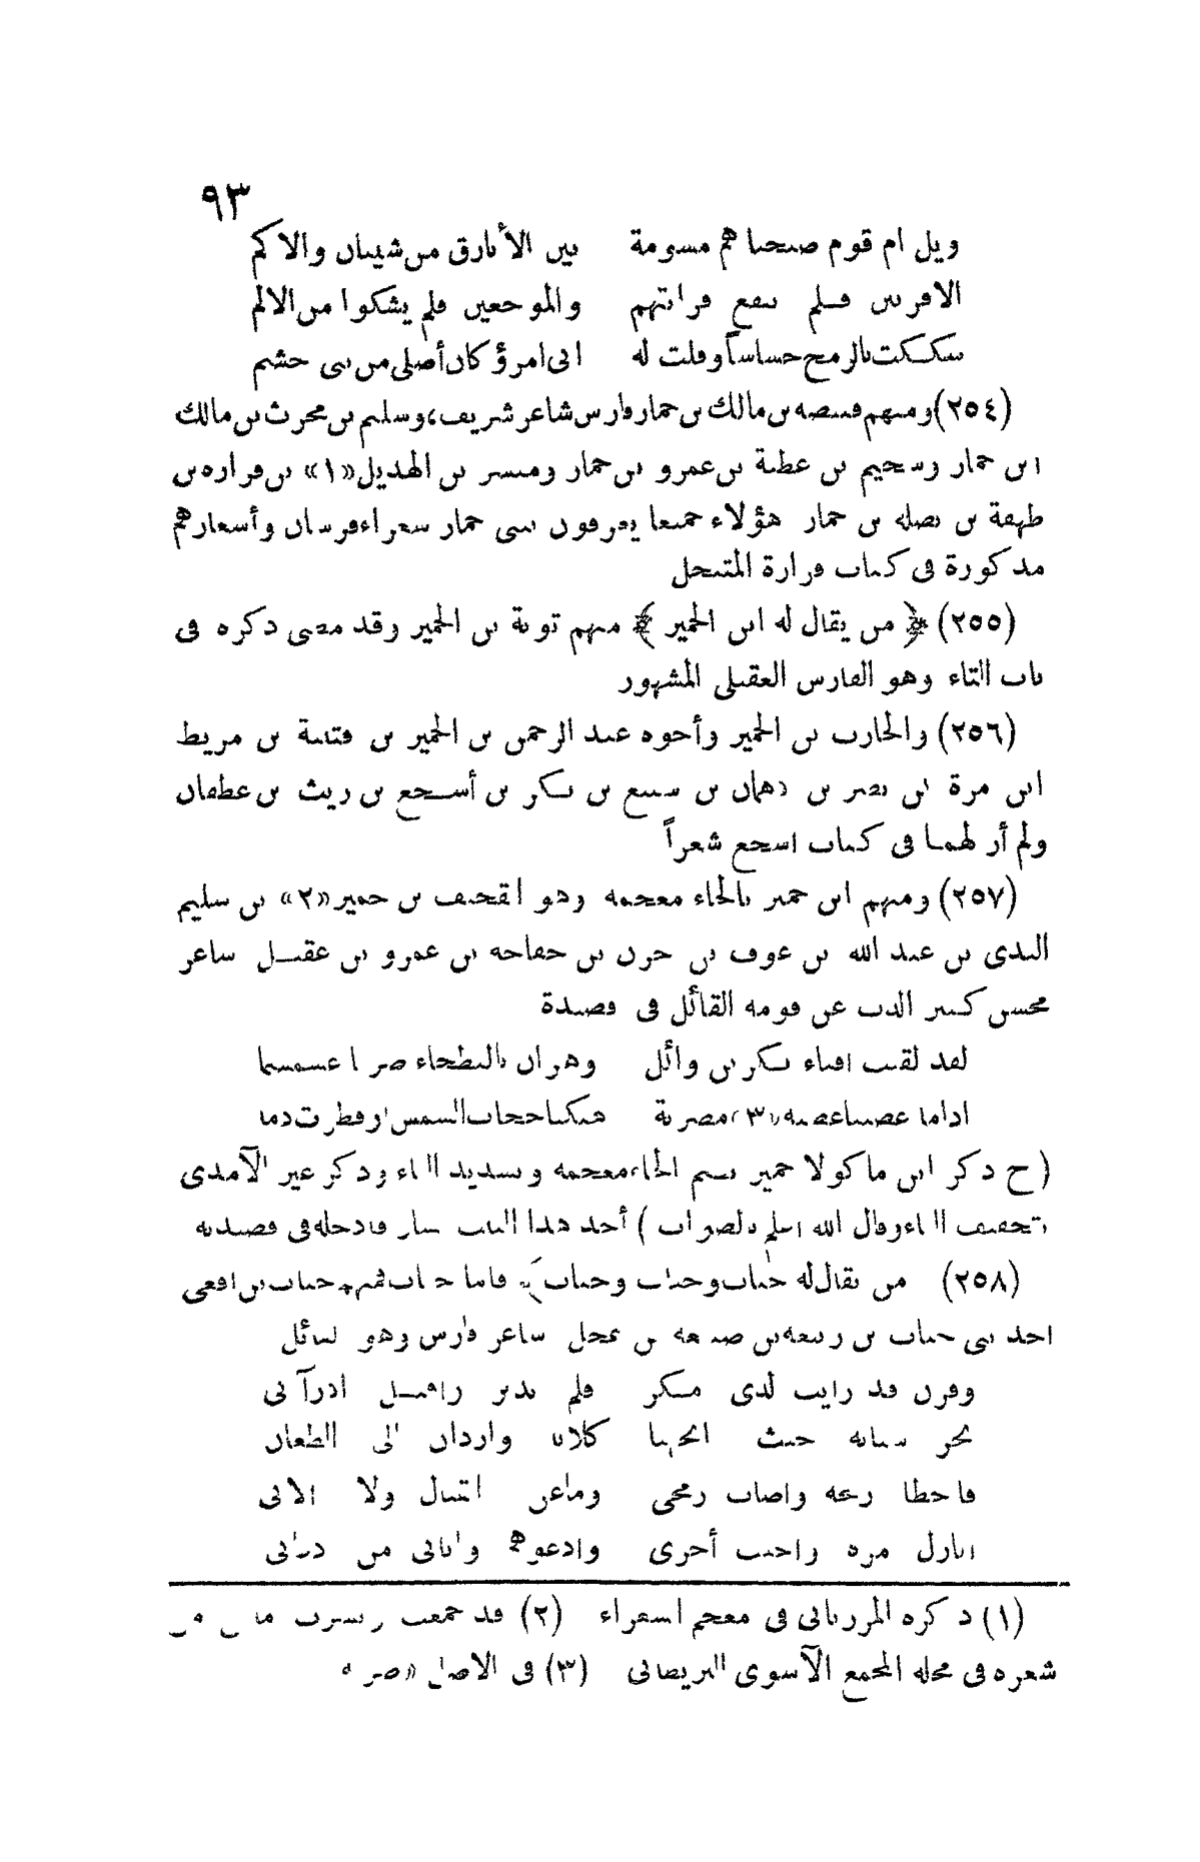 ٩٣
ويل ام قوم صبحناهم مسومة بين الأبارق من شيبان والاكم
الاقربين فلم تنفع قرابتهم والموجعين فلم يشكوا من الالم
شككت بالرمح جساساً وقلت له انى امرؤ كان أصلى من بنى جشم
(٢٥٤) ومنهم قبيصه بن مالك بن حمار فارس شاعر شريف، وسليم بن محرث بن مالك
ابن حمار وسحيم بن عطية بن عمرو بن حمار وميسر بن الهذيل «١» بن فزاره بن
طهفة بن نضله بن حمار هؤلاء جميعا يعرفون ببنى حمار شعراء فرسان وأشعارهم
مذكورة فى كتاب فزارة المنتحل
(٢٥٥) ﴿ من يقال له ابن الحمير ﴾ منهم توبة بن الحمير وقد مضى ذكره فى
باب التاء وهو الفارس العقيلى المشهور
(٢٥٦) والحارث بن الحمير وأخوه عبد الرحمن بن الحمير بن قتيبة بن مريط
ابن مرة بن نصر بن دهمان بن سبيع بن بكر بن أشجع بن ريث بن غطفان
ولم أر لهما فى كتاب اشجع شعراً
(٢٥٧) ومنهم ابن خمير بالخاء معجمه وهو القحيف بن خمير «٢» بن سليم
الندى بن عبد الله بن عوف بن حزن بن خفاجه بن عمرو بن عقيل شاعر
محسن كثير الذب عن قومه القائل فى قصيدة
لقد لقيت افناء بكر بن وائل وهزان بالبطحاء ضربا غشمشما
اذا ما غضبنا غضبه «٣» مضرية هتكنا حجاب الشمس او قطرت دما
(ح ذكر ابن ماكولا خمير بضم الخاء معجمه وتشديد الياء وذكر غير الآمدى
بتخفيف الياء وقال الله اعلم بالصواب) أخذ هذا البيت بشار فادخله فى قصيدته
(٢٥٨) من يقال له حباب وجناب فاما فمنهم بن افعى
احد بنى بن ربيعه بن بن عجل شاعر فارس وهو القائل
وقرن قد رايت لدى مكر فلم يدبر واقبل اذ رآنى
يجر سنانه حيث انتحينا كلانا واردان الى الطعان
فاخطا رمحه واصاب رمحى وما عن ولا الانى
انازل مره واجيب أخرى وادعوهم
(١) ذكره المرزبانى فى معجم الشعراء (٢) قد جمعت ونشرت ما
شعره فى مجله المجمع الآسوى البريطانى (٣) فى الاصل